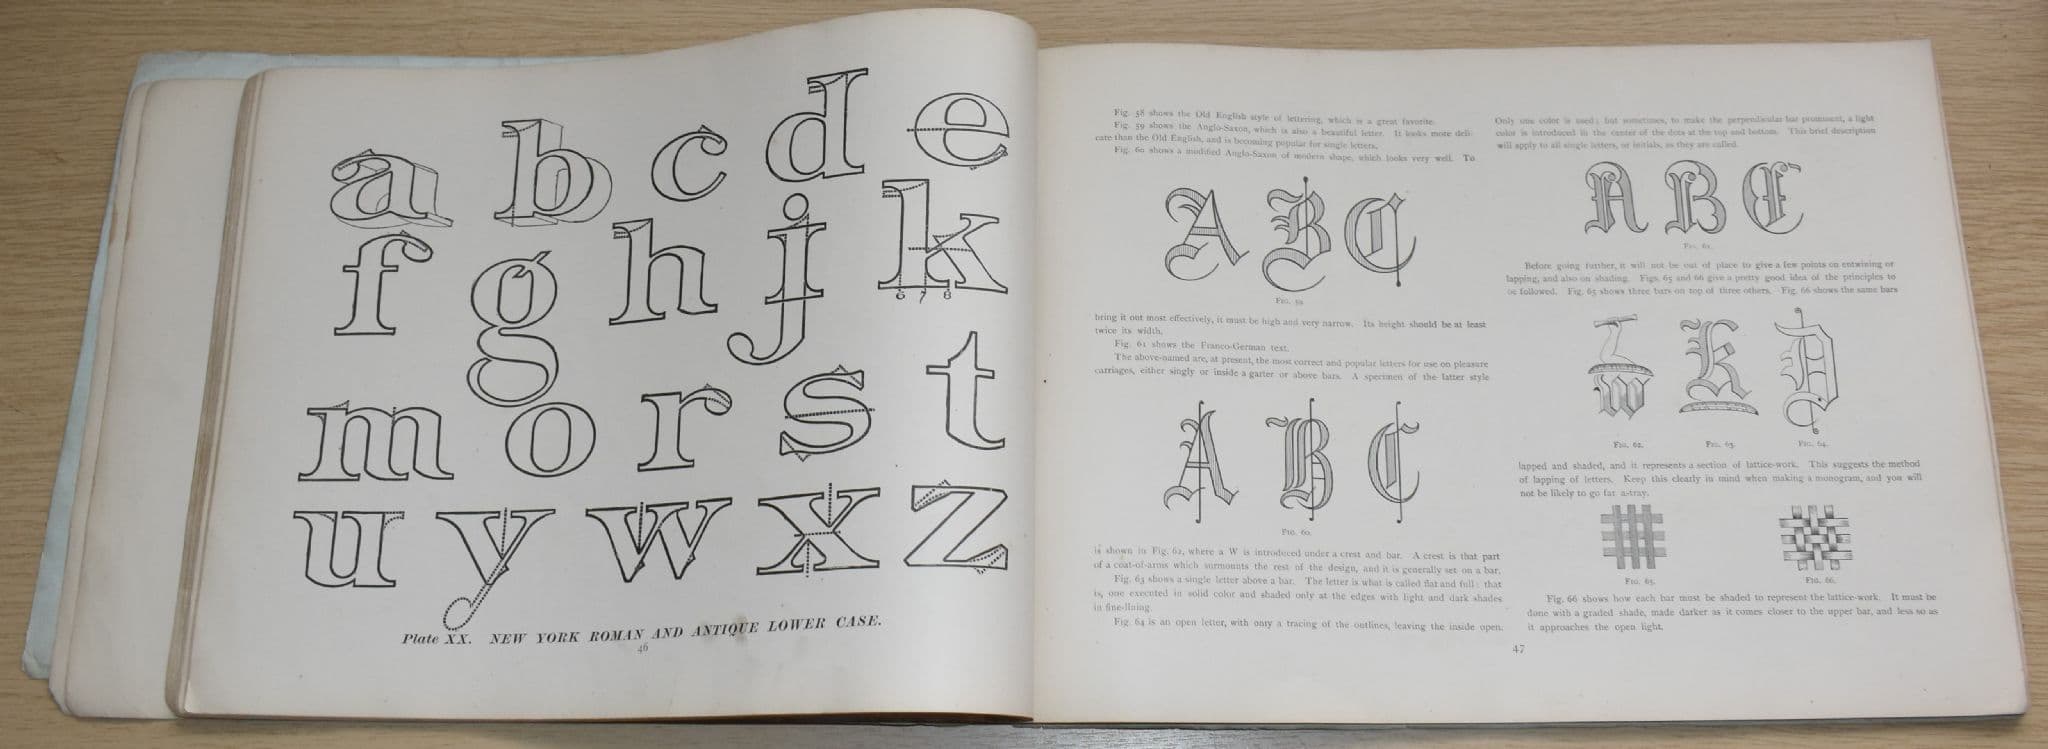 a b c d e
f g h j k
6 7 8
m o r s t
u y w x z
Plate XX. NEW YORK ROMAN AND ANTIQUE LOWER CASE.
46
Fig. 58 shows the Old English style of lettering, which is a great favorite.
Fig. 59 shows the Anglo-Saxon, which is also a beautiful letter. It looks more deli-
cate than the Old English, and is becoming popular for single letters.
Fig. 60 shows a modified Anglo-Saxon of modern shape, which looks very well. To
A B C
FIG. 59.
bring it out most effectively, it must be high and very narrow. Its height should be at least
twice its width.
Fig. 61 shows the Franco-German text.
The above-named are, at present, the most correct and popular letters for use on pleasure
carriages, either singly or inside a garter or above bars. A specimen of the latter style
A B C
FIG. 60.
is shown in Fig. 62, where a W is introduced under a crest and bar. A crest is that part
of a coat-of-arms which surmounts the rest of the design, and it is generally set on a bar.
Fig. 63 shows a single letter above a bar. The letter is what is called flat and full; that
is, one executed in solid color and shaded only at the edges with light and dark shades
in fine-lining.
Fig. 64 is an open letter, with only a tracing of the outlines, leaving the inside open.
Only one color is used; but sometimes, to make the perpendicular bar prominent, a light
color is introduced in the center of the dots at the top and bottom. This brief description
will apply to all single letters, or initials, as they are called.
A B C
FIG. 61.
Before going further, it will not be out of place to give a few points on entwining or
lapping, and also on shading. Figs. 65 and 66 give a pretty good idea of the principles to
be followed. Fig. 65 shows three bars on top of three others. Fig. 66 shows the same bars
W
FIG. 62. FIG. 63. FIG. 64.
lapped and shaded, and it represents a section of lattice-work. This suggests the method
of lapping of letters. Keep this clearly in mind when making a monogram, and you will
not be likely to go far a-tray.
FIG. 65. FIG. 66.
Fig. 66 shows how each bar must be shaded to represent the lattice-work. It must be
done with a graded shade, made darker as it comes closer to the upper bar, and less so as
it approaches the open light.
47